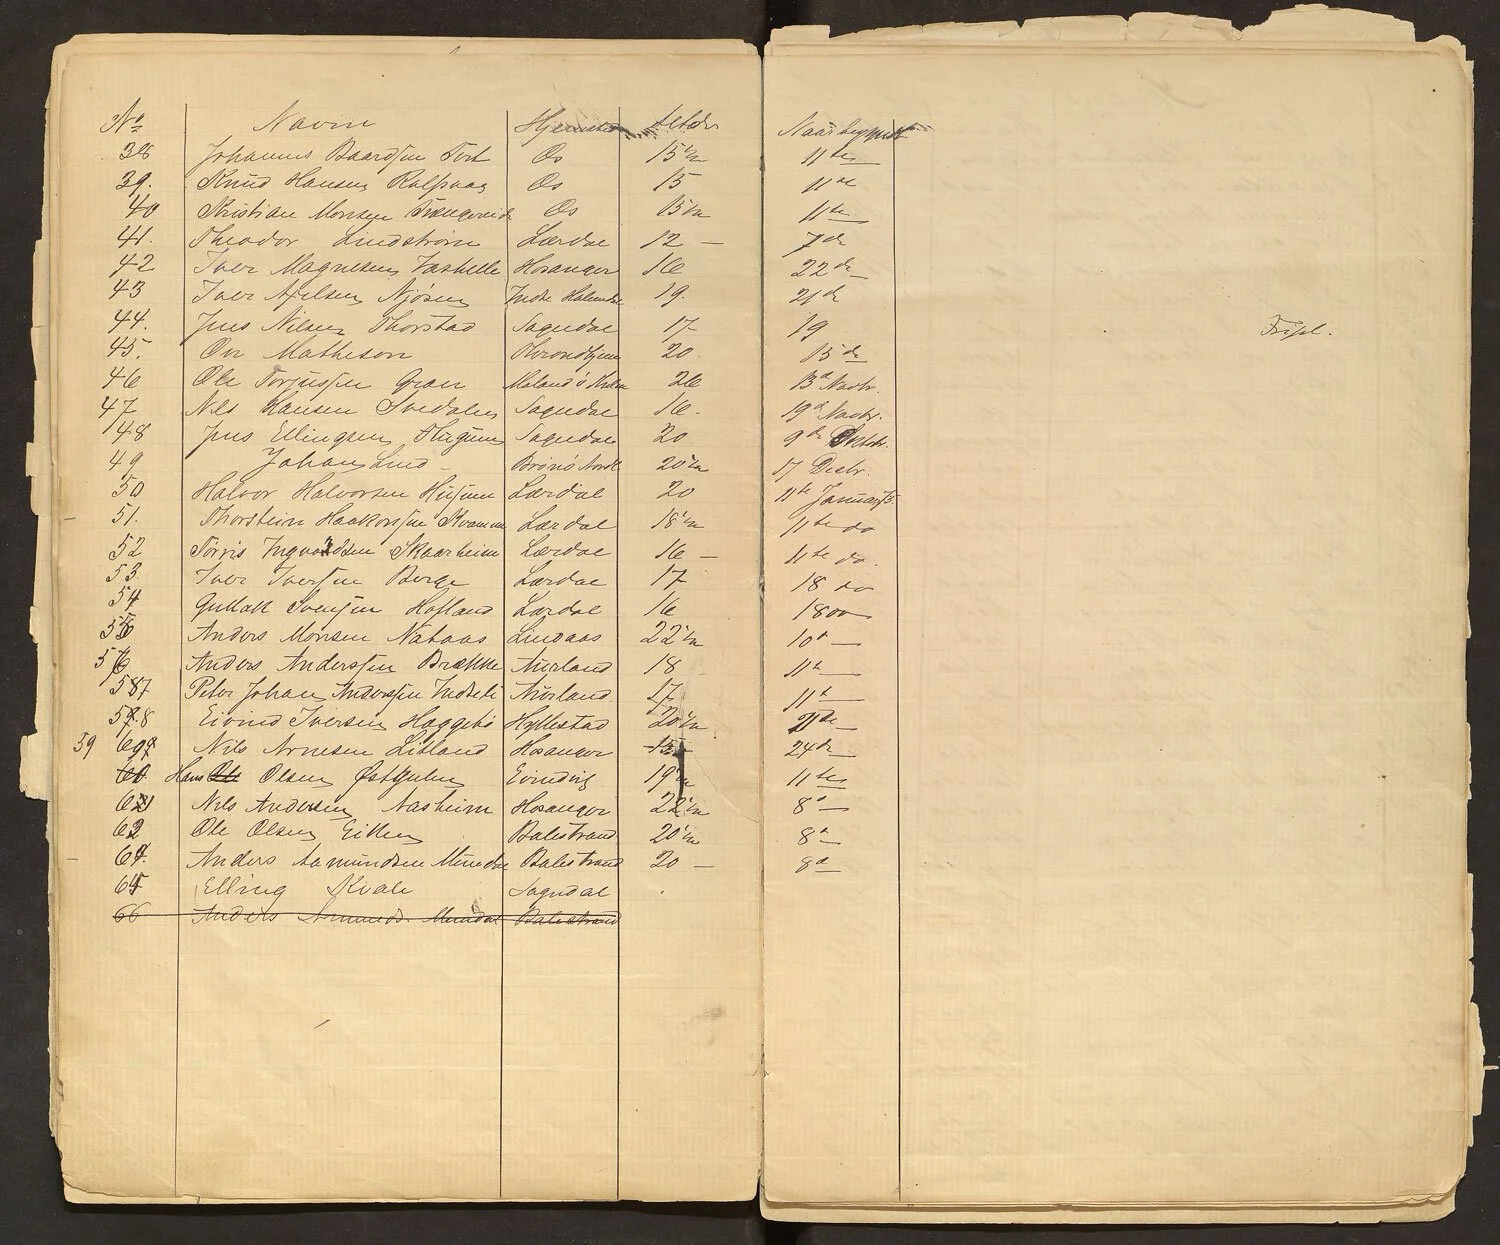 No Navn Hjemsted Alder Naar begyndt
38 Johannes Baardsen Os 15 1/2 11te
39. Knud Hansen Os 15 11te
40 Kristian Monsen Os 15 1/2 11te
41. Theodor Lindstrøm Lærdal 12 — 7de
42 Iver Magnesen Hosanger 16 22de
43 Iver Njøsen Indre 19. 21de
44. Jens Nilsen Thorstad Sogndal 17 19 Fripl.
45. Ole Matheson 20. 15de
46 Ole Torjussen 26 13d Novbr.
47 Nils Hansen Svedalen Sogndal 16. 19d Novbr.
48 Jens Ellingsen Sogndal 20 9de Oktbr.
49 Johan Lind Brønø Nordl 20 1/2 17 Decbr.
50 Halvor Halvorsen Husum Lærdal 20 11te Januar 75
51. Thorstein Haakonsen Kvamme Lærdal 18 1/2 11te do
52 Tørris Ingvardsen Skaarheim Lærdal 16 — 11te do.
53. Iver Iversen Berge Lærdal 17 18 do
54 Gullak Svensen Hofland Lærdal 16 18 do
55 Anders Monsen Nataas Lindaas 22 1/2 10d —
56 Anders Anderssen Brække Aurland 18 11te
587 Peter Johan Anderssen Indreli Aurland 17 11te
578 Eivind Iversen Hæggebø Hyllestad 20 1/2 21de
59 Nils Arnesen Litland Hosanger 15 24de
60 Hans Ole Olsen Østgulen Evindvig 19 1/2 11te
621 Nils Andersen Aasheim Hosanger 22 1/2 8d —
62 Ole Olsen Balestrand 20 1/2 8d
64. Anders Aamundsen Mundal Balestrand 20 — 8d
65 Elling Kvale Sogndal
66 Anders Amunds. Mundal Balestrand